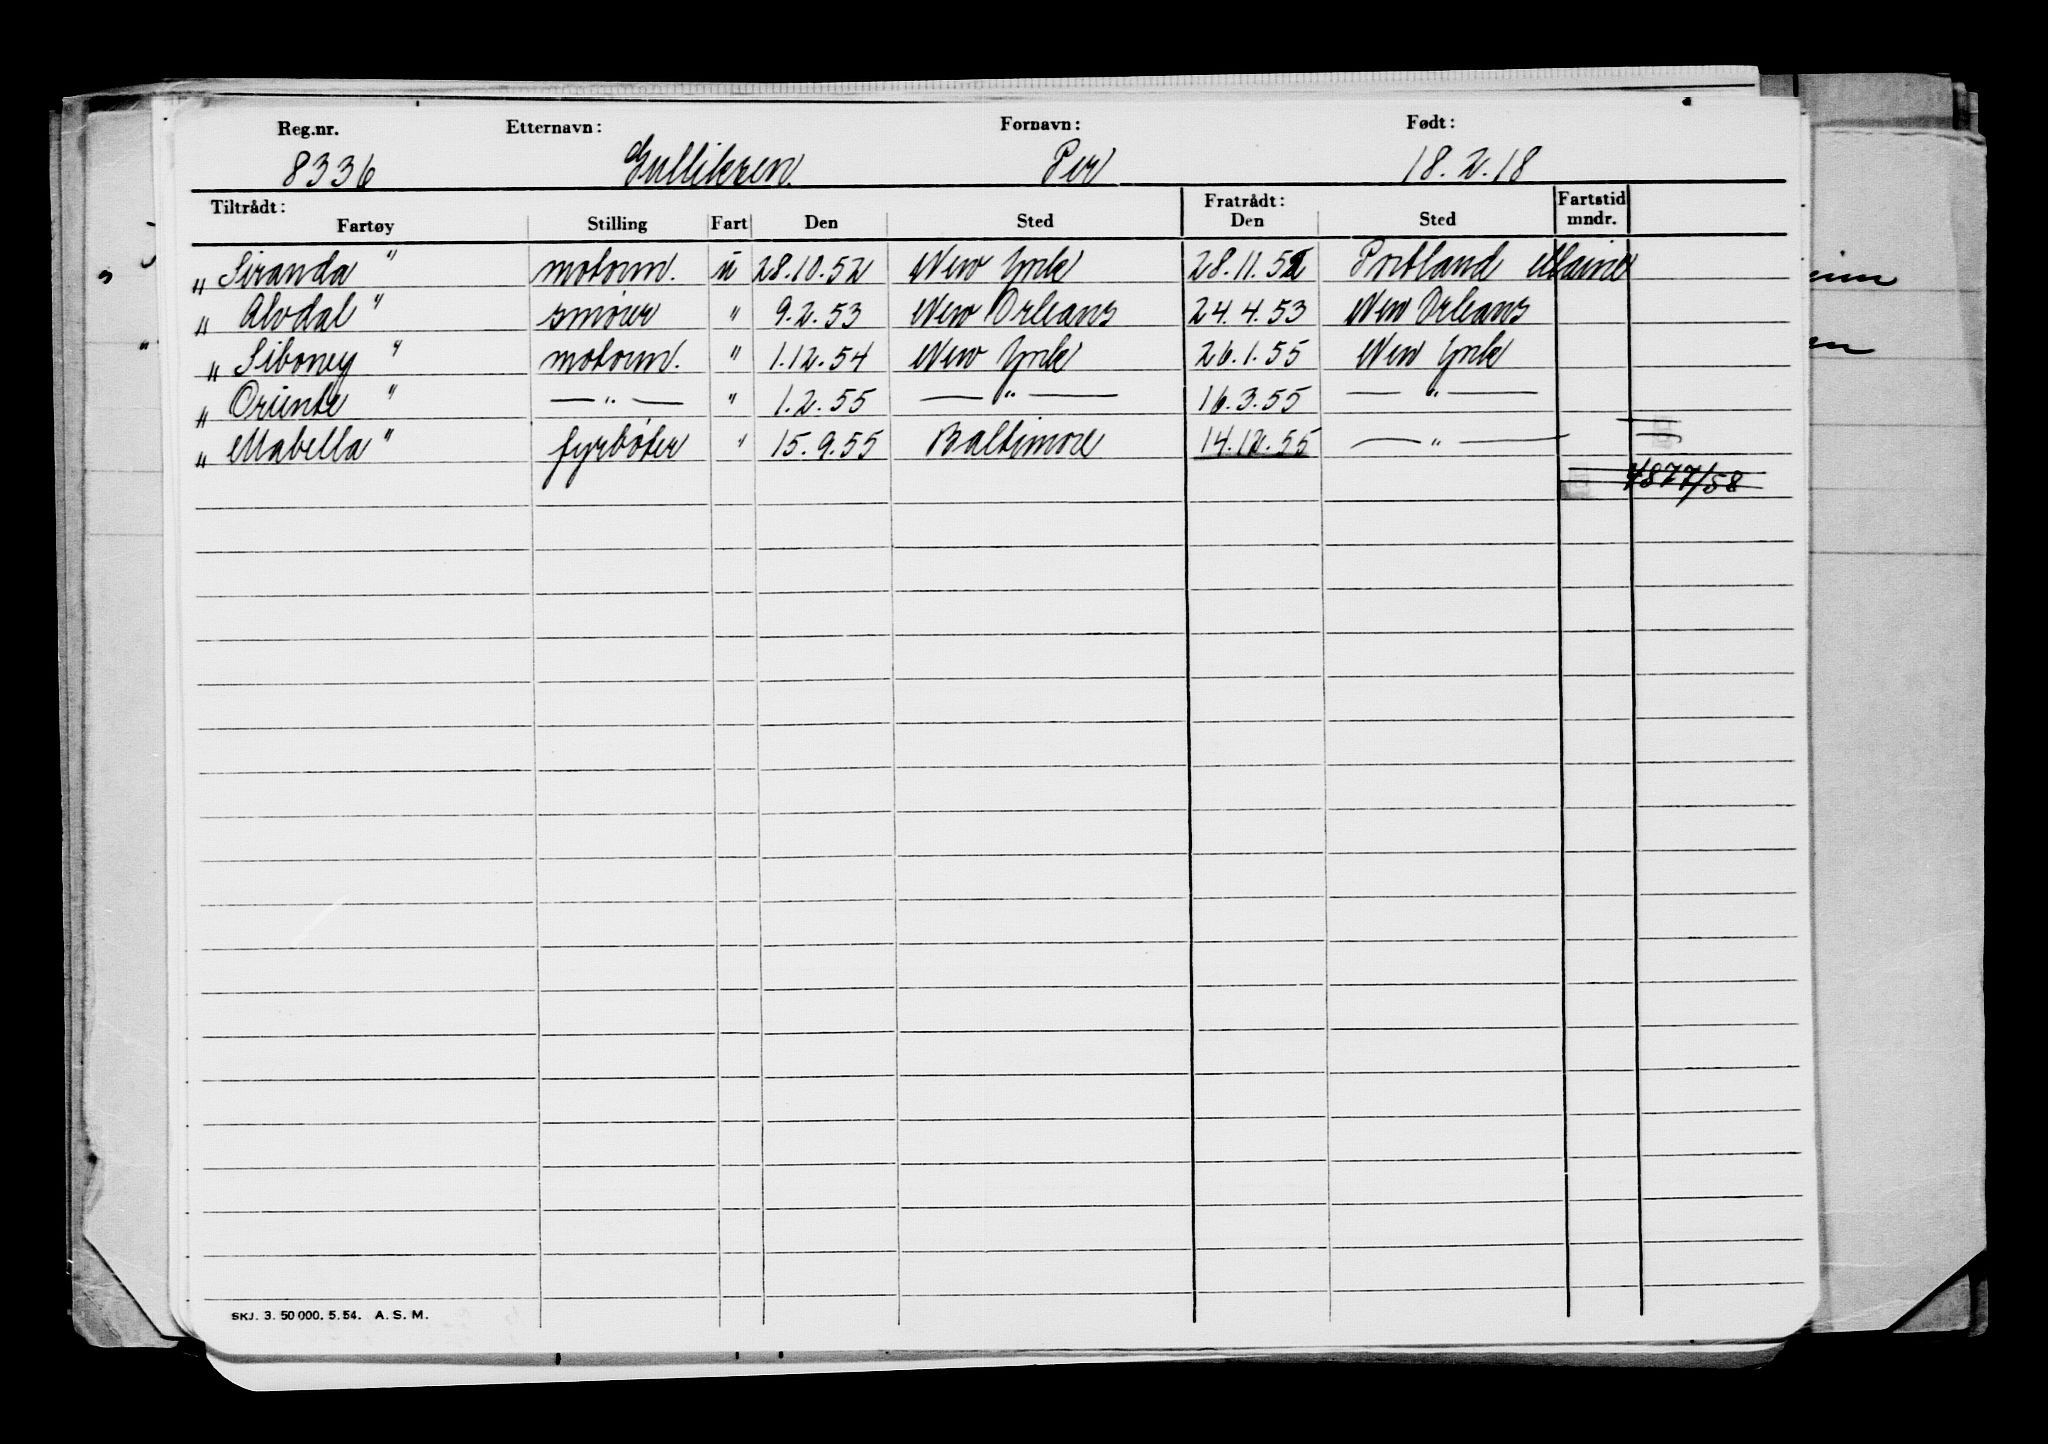 Reg.nr. Etternavn: Fornavn: Født:
8336 Gulliksen Per 18.2.18
Tiltrådt: Fratrådt: Fartstid
Fartøy Stilling Fart Den Sted Den Sted mndr.
" Siranda " motorm. u 28.10.52 New York 28.11.52 Portland Maine
" Alvdal " smører " 9.2.53 New Orleans 24.4.53 New Orleans
" Siboney " motorm. " 1.12.54 New York 26.1.55 New York
" Oriente " — " — " 1.2.55 — " — 16.3.55 — " —
" Mabella " fyrbøter " 15.9.55 Baltimore 14.12.55 — " —
4877/58
SKJ. 3. 50 000. 5. 54. A. S. M.